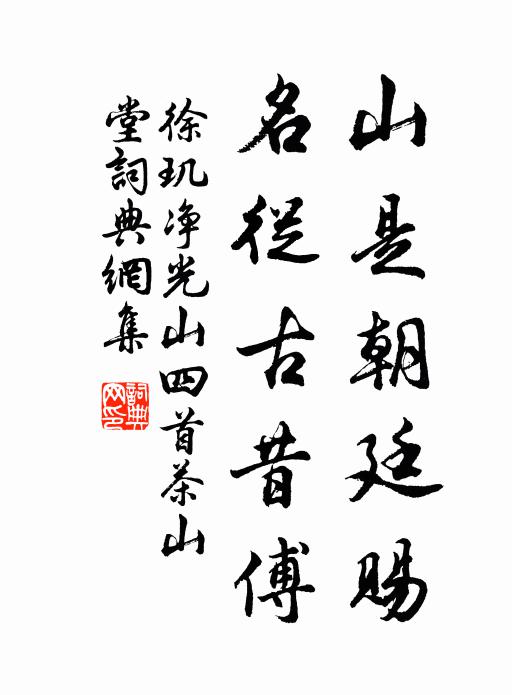 山是朝廷賜
名從古昔傅
徐玑凈光山四首茶山
堂詞典網集
詞典網印